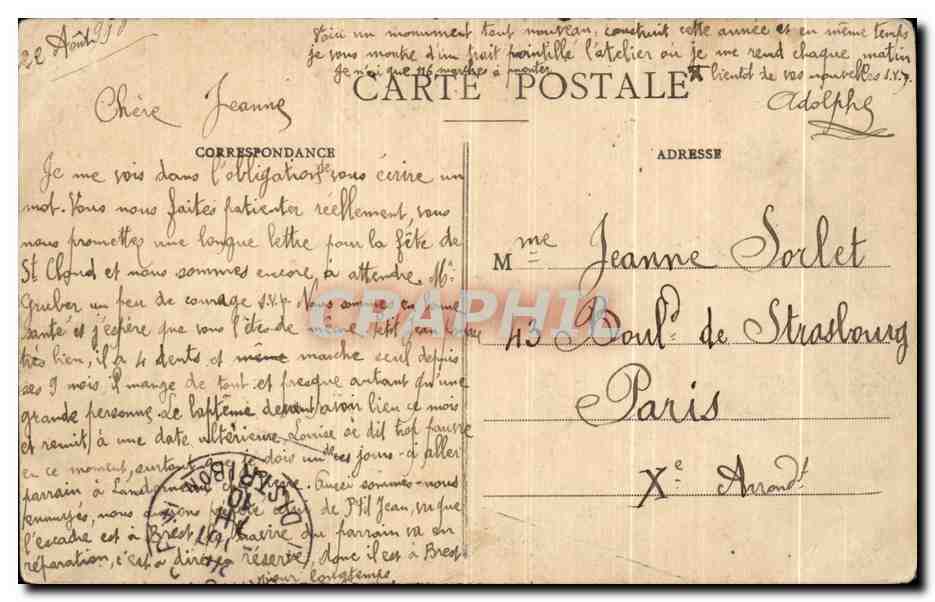 22 Août
Voici un monument tout nouveau, construit cette année et en même temps
je vous montre d'un trait pointillé l'atelier où je me rend chaque matin
je n'ai que 116 marches à monter
bientôt de vos nouvelles S.V.P.
Adolphe
CARTE POSTALE
Chère Jeanne
CORRESPONDANCE
ADRESSE
Je me vois dans l'obligation de vous écrire un
mot. Vous nous faites patienter réellement, vous
nous promettez une longue lettre pour la fête de
St Cloud et nous sommes encore à attendre. Me
Gruber un peu de courage S.V.P. Nous sommes en bonne
santé et j'espère que vous l'êtes de même, ptit jean
très bien, il a 4 dents et même marche seul depuis
ses 9 mois. il mange de tout et presque autant qu'une
grande personne. Le baptême devant avoir lieu ce mois
et remit à une date ultérieure, Louise se dit trop pauvre
en ce moment, surtout que je dois un de ces jours-ci aller
parrain à Aussi sommes-nous
ennuyés, nous de Ptit Jean, vu que
l'escadre est à Brest le navire du parrain va en
réparation, c'est à dire en réserve, donc il est à Brest
pour longtemps
Mme Jeanne Sorlet
43 Bould de Strasbourg
Paris
Xe Arrondt
DISTRIBON
CPAPHIL